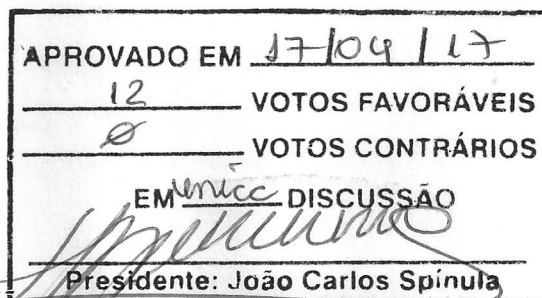 APROVADO EM 17/04/17
12 VOTOS FAVORÁVEIS
Ø VOTOS CONTRÁRIOS
EM única DISCUSSÃO
Presidente: João Carlos Spínula